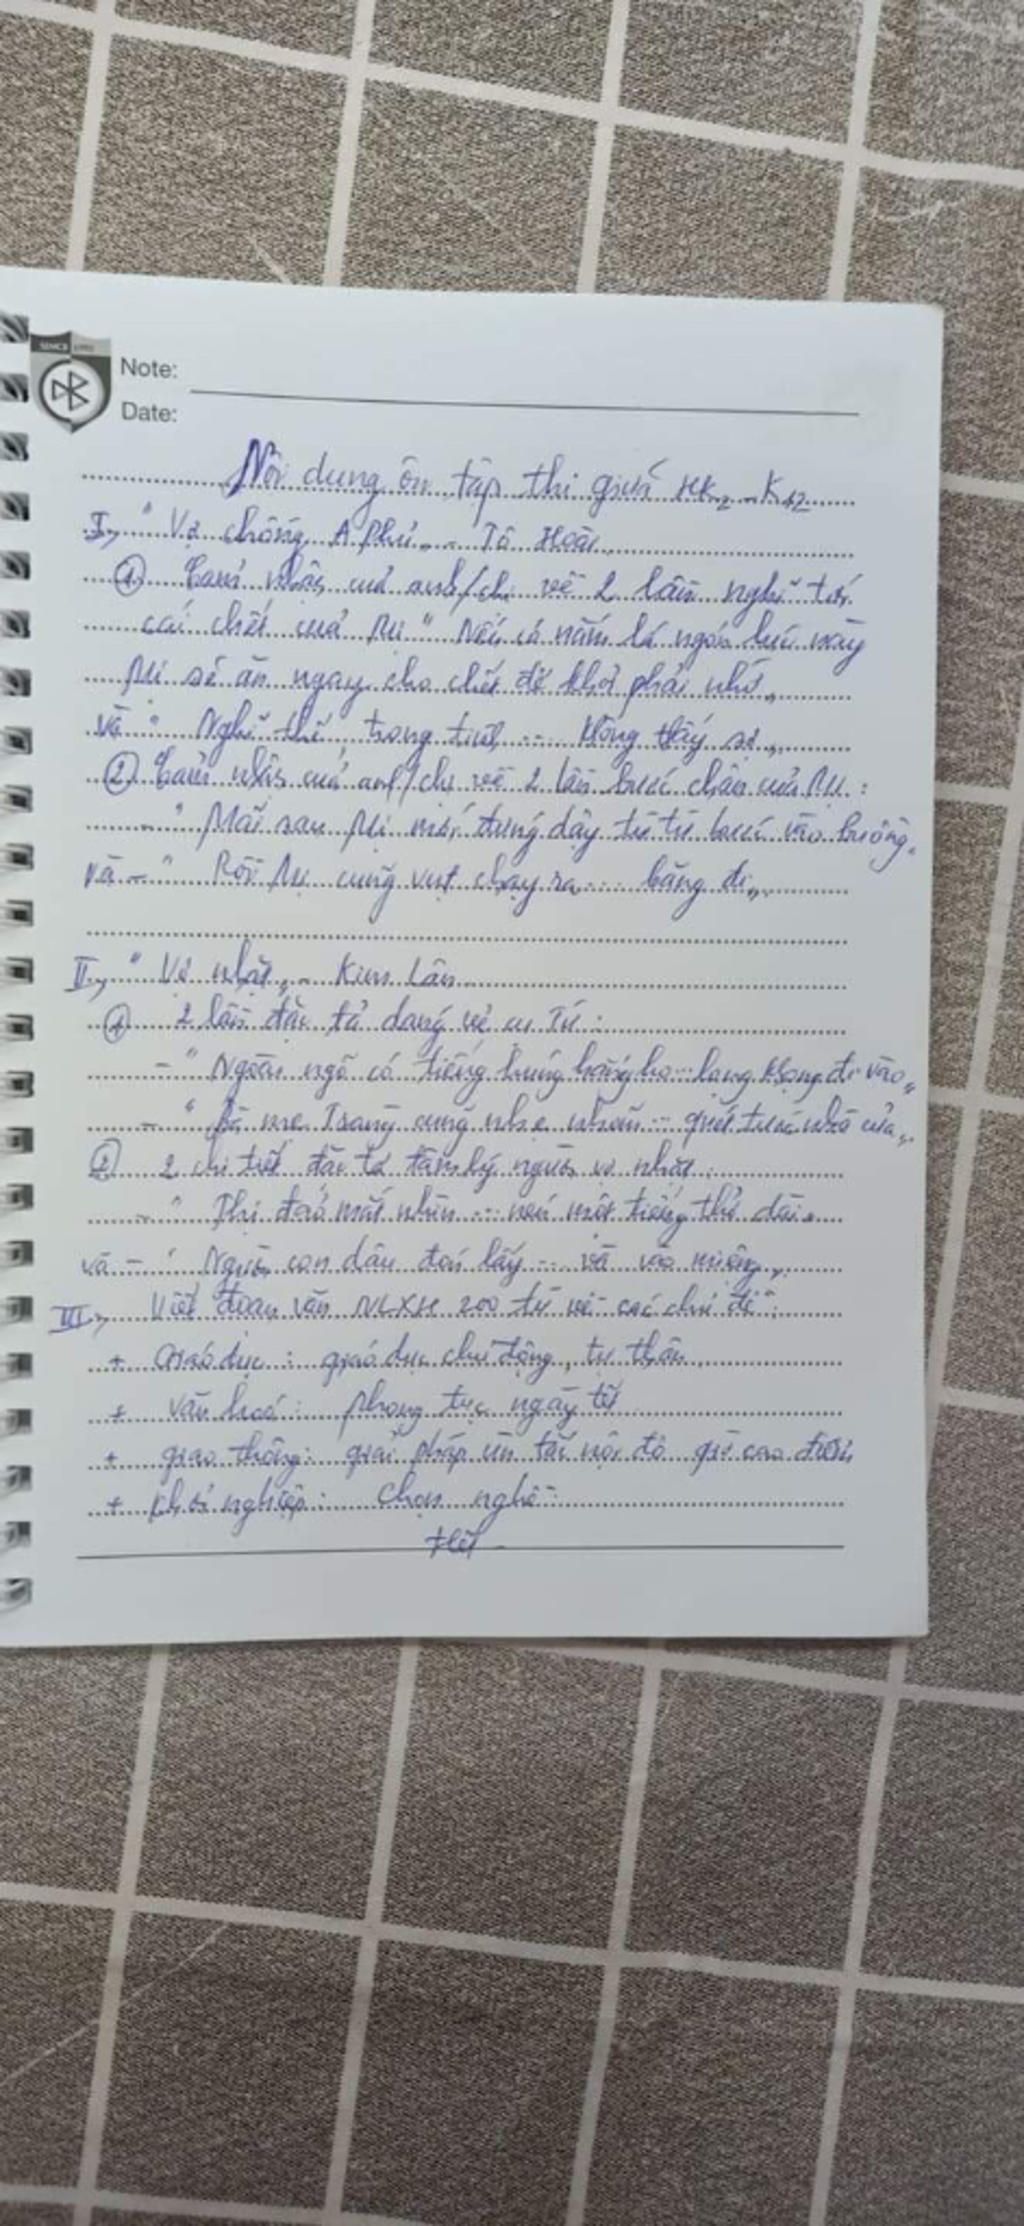 SINCE 1992
Note:
Date:
Nội dung ôn tập thi giữa HK2 - K12
I, " Vợ chồng A Phủ " - Tô Hoài
① Cảm nhận của anh/chị về 2 lần nghĩ tới
cái chết của Mị " Nếu có nắm lá ngón lúc này
Mị sẽ ăn ngay cho chết để khỏi phải nhớ "
và " Nghĩ thế, trong tình ... không thấy sợ "
② Cảm nhận của anh/chị về 2 lần bước chân của Mị :
- " Mãi sau Mị mới đứng dậy từ từ bước vào buồng "
và - " Rồi Mị cũng vụt chạy ra ... băng đi "
II, " Vợ nhặt " - Kim Lân
① 2 lần đặc tả dáng vẻ cụ Tứ :
- " Ngoài ngõ có tiếng húng hắng ho ... lọng khọng đi vào "
- " Bà mẹ Tràng cũng nhẹ nhõm ... quét tước nhà cửa "
② 2 chi tiết đặc tả tâm lý người vợ nhặt :
- " Thị đảo mắt nhìn ... nén một tiếng thở dài "
và - " Người con dâu đón lấy ... và vào miệng "
III, Viết đoạn văn NLXH 200 từ về các chủ đề :
+ Giáo dục : giáo dục chủ động, tự thân
+ Văn hoá : phong tục ngày tết
+ giao thông : giải pháp ùn tắc nội đô giờ cao điểm
+ khởi nghiệp : chọn nghề
Hết